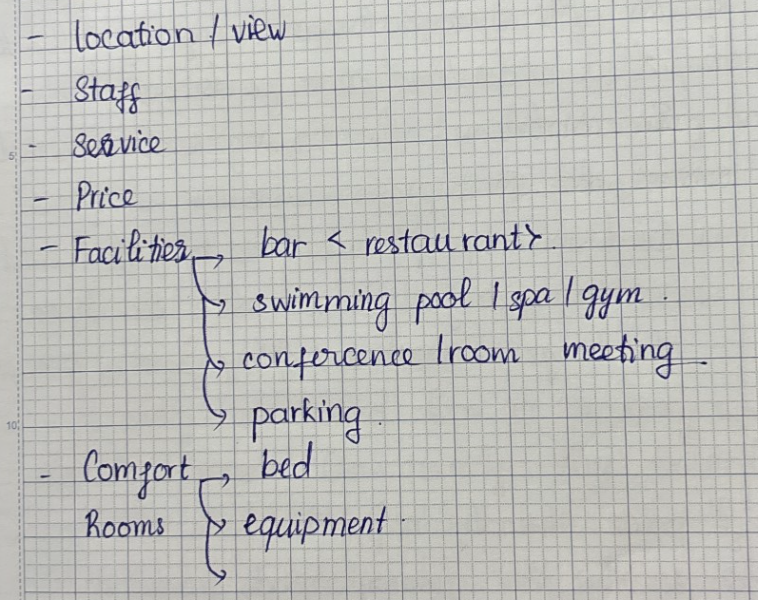 - location / view
- Staff
- Service
- Price
- Facilities → bar < restaurant >.
→ swimming pool / spa / gym.
→ confercence / room meeting
→ parking.
- Comfort → bed
Rooms → equipment.
→
5
10